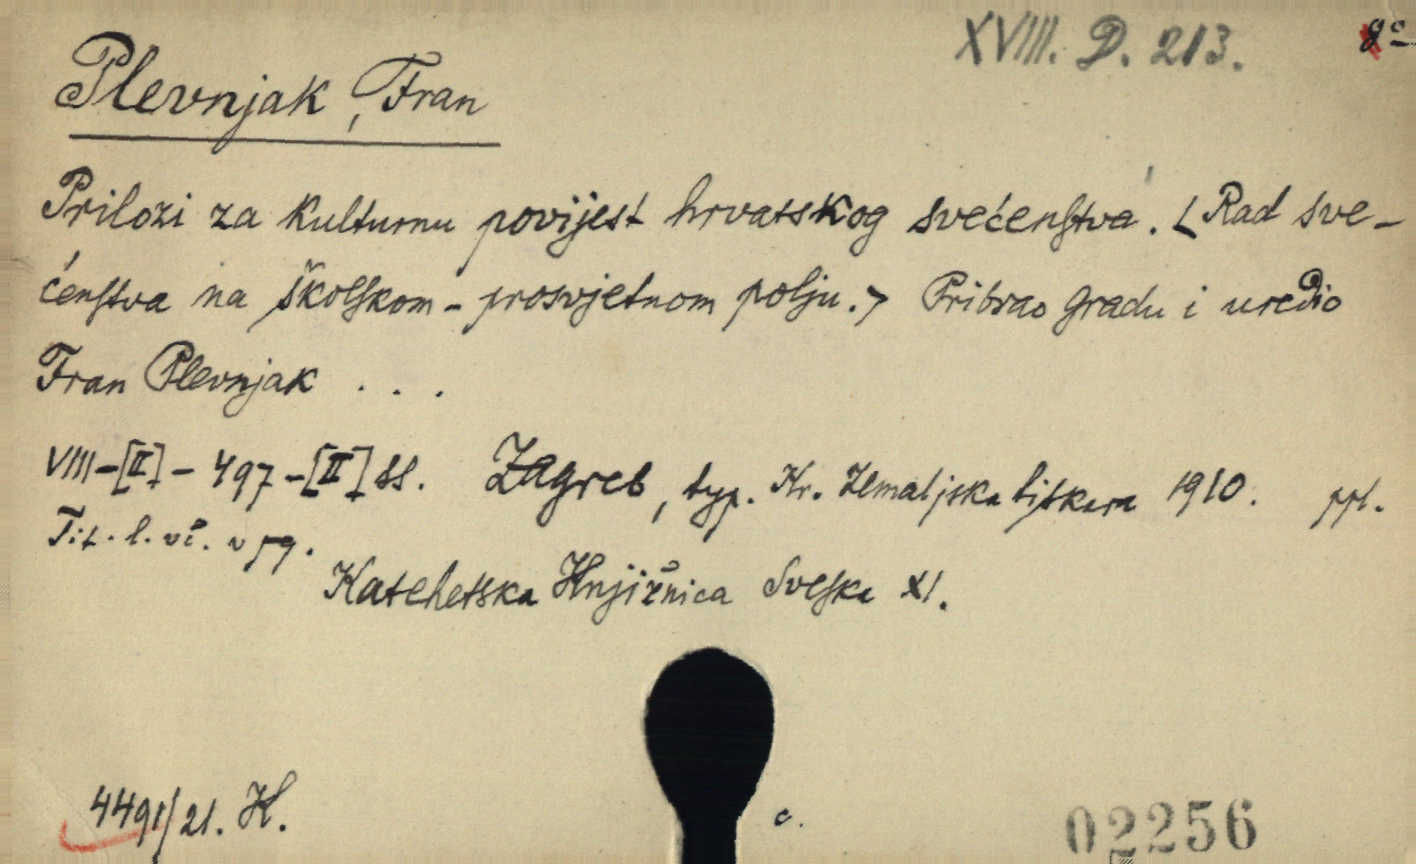 XVIII. D. 213.
8º
Plevnjak, Fran
Prilozi za kulturnu povijest hrvatskog svećenstva. <Rad sve-
ćenstva na školskom-prosvjetnom polju.> Pribrao gradu i uredio
Fran Plevnjak . . .
VIII-[II]-497-[II] ss. Zagreb, typ. Kr. Zemaljska tiskara 1910. ppl.
Tit. l.
Katehetska Knjižnica Sveska XI.
4491/21. K.
c.
02256